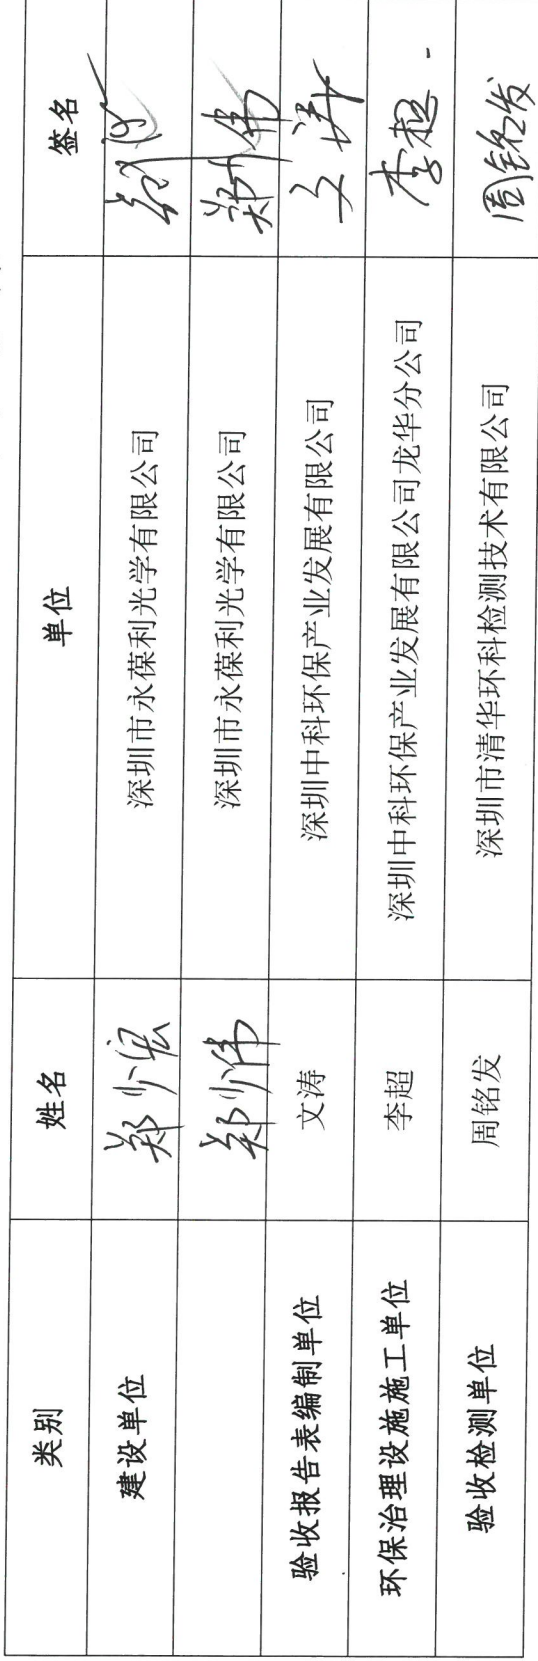 类别 姓名 单位 签名
建设单位 郑少宏 深圳市永葆利光学有限公司
郑少伟 深圳市永葆利光学有限公司 郑少伟
验收报告表编制单位 文涛 深圳中科环保产业发展有限公司 文涛
环保治理设施施工单位 李超 深圳中科环保产业发展有限公司龙华分公司 李超
验收检测单位 周铭发 深圳市清华环科检测技术有限公司 周铭发